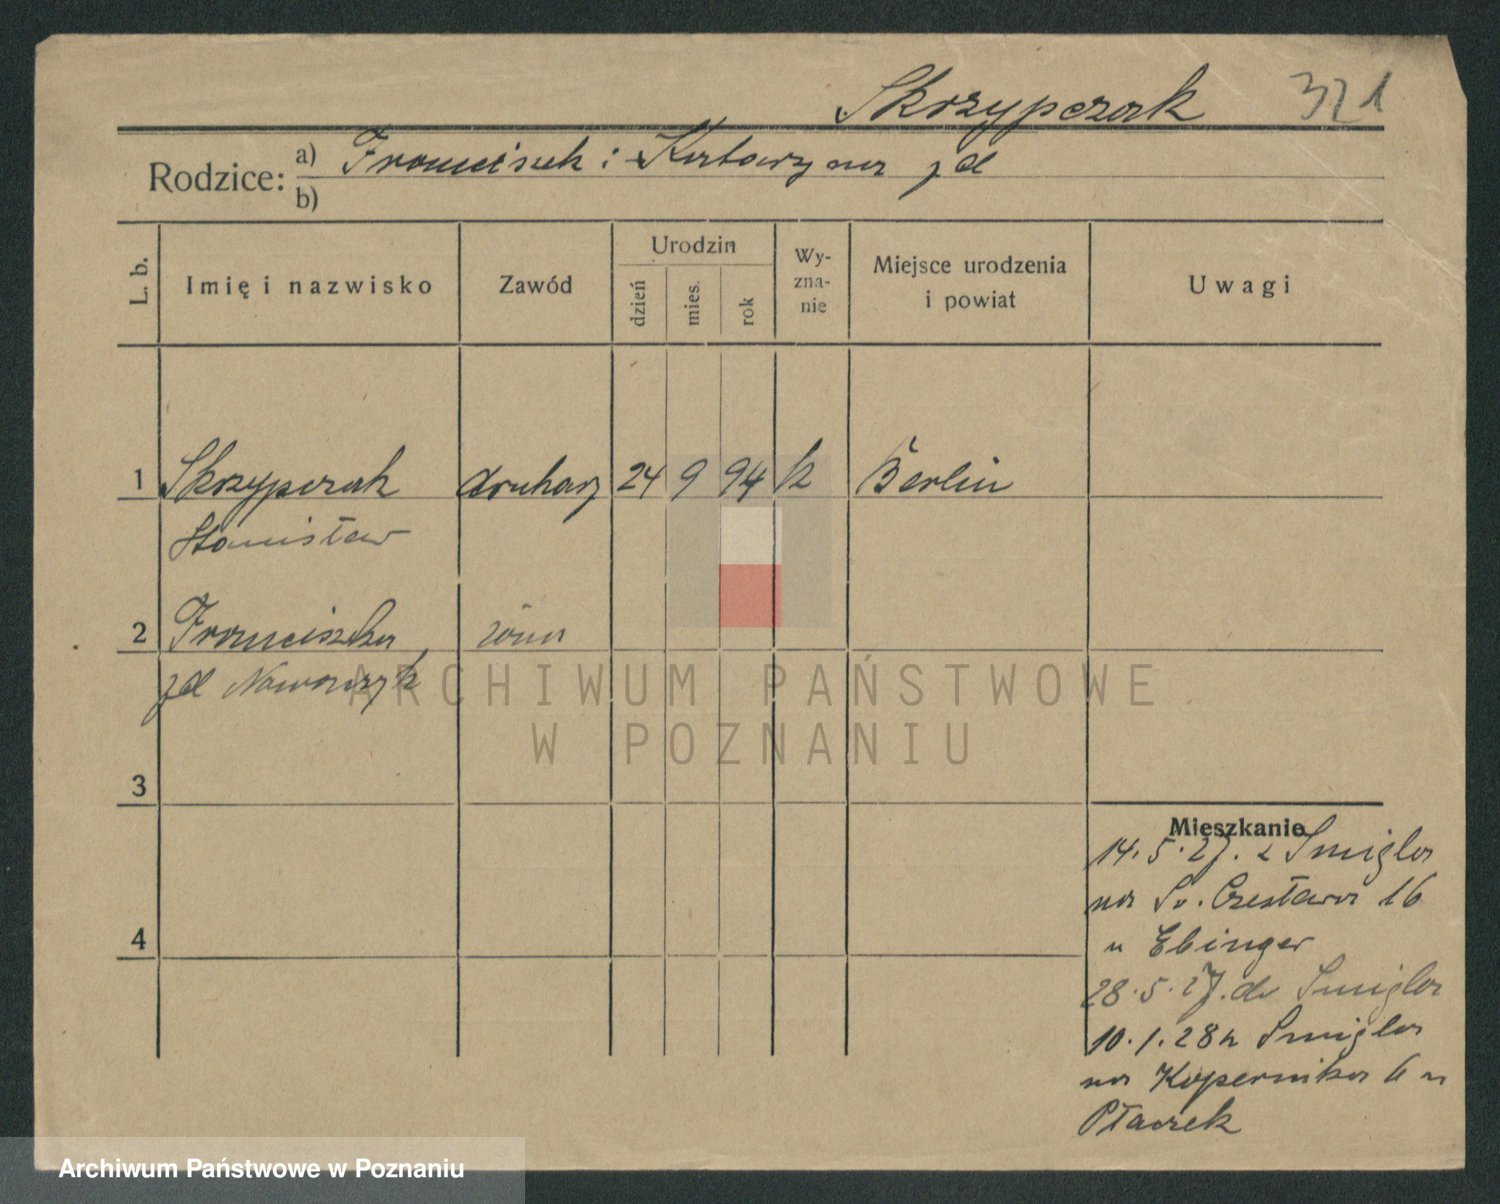 Skrzypczak 321
Rodzice: a) Franciszek i Katarzyna zd
b)
L. b. Imię i nazwisko Zawód Urodzin dzień mies. rok Wyznanie Miejsce urodzenia i powiat Uwagi
1 Skrzypczak drukarz 24 9 94 k Berlin
Stanisław
2 Franciszka żona
zd Nawrozyk
ARCHIWUM PAŃSTWOWE
W POZNANIU
3
Mieszkanie
14.5.27. z Śmigla
na Św. Czesława 16
4
u Ebinger
28.5.27. do Śmigla
10.1.28 z Śmigla
na Kopernika 6 u
Ptaszek
Archiwum Państwowe w Poznaniu